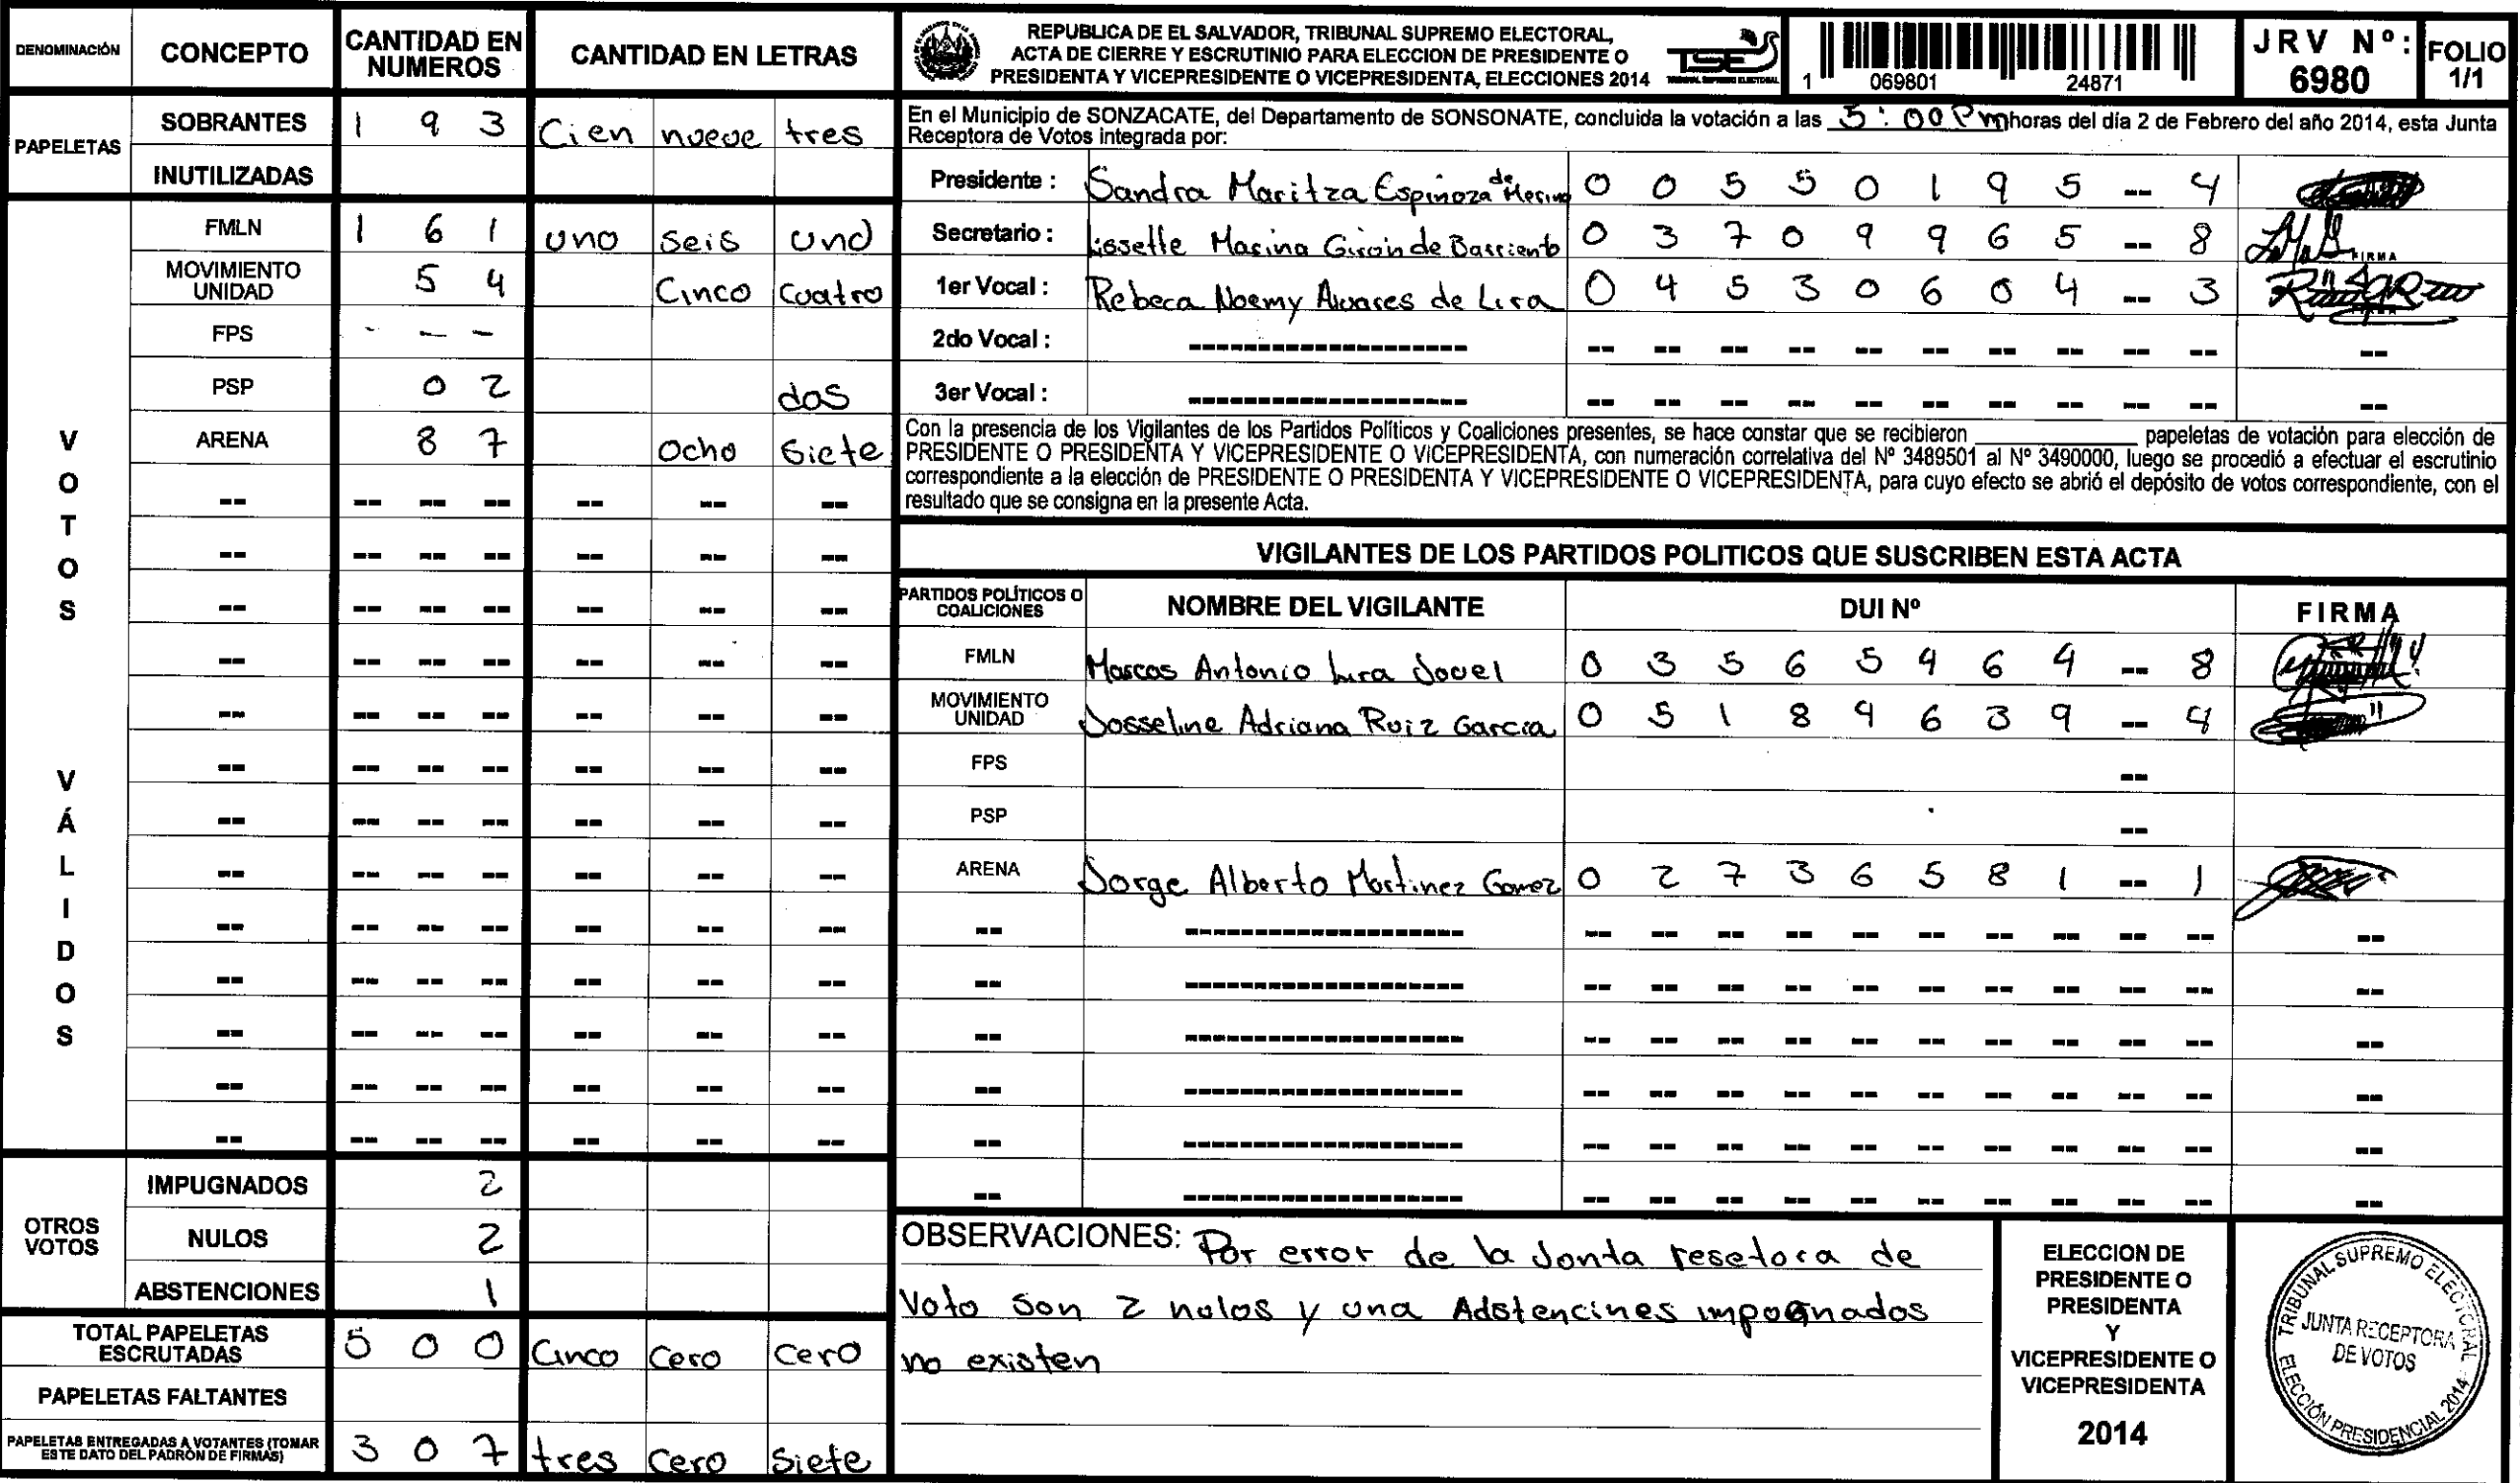 DENOMINACIÓN CONCEPTO CANTIDAD EN NUMEROS CANTIDAD EN LETRAS
PAPELETAS
SOBRANTES 1 9 3 Cien nueve tres
INUTILIZADAS
VOTOS VÁLIDOS
FMLN 1 6 1 uno seis uno
MOVIMIENTO UNIDAD 5 4 Cinco Cuatro
FPS - - -
PSP 0 2 dos
ARENA 8 7 Ocho Siete
-- -- -- -- -- -- --
-- -- -- -- -- -- --
-- -- -- -- -- -- --
-- -- -- -- -- -- --
-- -- -- -- -- -- --
-- -- -- -- -- -- --
-- -- -- -- -- -- --
-- -- -- -- -- -- --
-- -- -- -- -- -- --
-- -- -- -- -- -- --
-- -- -- -- -- -- --
-- -- -- -- -- -- --
-- -- -- -- -- -- --
OTROS VOTOS
IMPUGNADOS 2
NULOS 2
ABSTENCIONES 1
TOTAL PAPELETAS ESCRUTADAS 5 0 0 Cinco Cero Cero
PAPELETAS FALTANTES
PAPELETAS ENTREGADAS A VOTANTES (TOMAR ESTE DATO DEL PADRÓN DE FIRMAS) 3 0 7 tres Cero Siete
REPUBLICA DE EL SALVADOR, TRIBUNAL SUPREMO ELECTORAL,
ACTA DE CIERRE Y ESCRUTINIO PARA ELECCION DE PRESIDENTE O
PRESIDENTA Y VICEPRESIDENTE O VICEPRESIDENTA, ELECCIONES 2014
TSE
TRIBUNAL SUPREMO ELECTORAL
1 069801 24871
JRV Nº: 6980
FOLIO 1/1
En el Municipio de SONZACATE, del Departamento de SONSONATE, concluida la votación a las 5:00 Pm horas del día 2 de Febrero del año 2014, esta Junta
Receptora de Votos integrada por:
Presidente : Sandra Maritza Espinoza de Merino 0 0 5 5 0 1 9 5 -- 4
Secretario : Lissette Marina Giron de Barriento 0 3 7 0 9 9 6 5 -- 8 FIRMA
1er Vocal : Rebeca Noemy Alvares de Lira 0 4 5 3 0 6 0 4 -- 3
2do Vocal : -------------------- -- -- -- -- -- -- -- -- -- -- --
3er Vocal : -------------------- -- -- -- -- -- -- -- -- -- -- --
Con la presencia de los Vigilantes de los Partidos Políticos y Coaliciones presentes, se hace constar que se recibieron ________ papeletas de votación para elección de
PRESIDENTE O PRESIDENTA Y VICEPRESIDENTE O VICEPRESIDENTA, con numeración correlativa del Nº 3489501 al Nº 3490000, luego se procedió a efectuar el escrutinio
correspondiente a la elección de PRESIDENTE O PRESIDENTA Y VICEPRESIDENTE O VICEPRESIDENTA, para cuyo efecto se abrió el depósito de votos correspondiente, con el
resultado que se consigna en la presente Acta.
VIGILANTES DE LOS PARTIDOS POLITICOS QUE SUSCRIBEN ESTA ACTA
PARTIDOS POLÍTICOS O COALICIONES NOMBRE DEL VIGILANTE DUI Nº FIRMA
FMLN Marcos Antonio Lira Jovel 0 3 5 6 5 9 6 4 -- 8
MOVIMIENTO UNIDAD Josseline Adriana Ruiz Garcia 0 5 1 8 9 6 3 9 -- 4
FPS --
PSP --
ARENA Jorge Alberto Martinez Gomez 0 2 7 3 6 5 8 1 -- 1
-- -------------------- -- -- -- -- -- -- -- -- -- -- --
-- -------------------- -- -- -- -- -- -- -- -- -- -- --
-- -------------------- -- -- -- -- -- -- -- -- -- -- --
-- -------------------- -- -- -- -- -- -- -- -- -- -- --
-- -------------------- -- -- -- -- -- -- -- -- -- -- --
-- -------------------- -- -- -- -- -- -- -- -- -- -- --
OBSERVACIONES: Por error de la Jonta resetora de
Voto son 2 nulos y una Adstencines impognados
no existen
ELECCION DE
PRESIDENTE O
PRESIDENTA
Y
VICEPRESIDENTE O
VICEPRESIDENTA
2014
TRIBUNAL SUPREMO ELECTORAL
JUNTA RECEPTORA
DE VOTOS
ELECCIÓN PRESIDENCIAL 2014